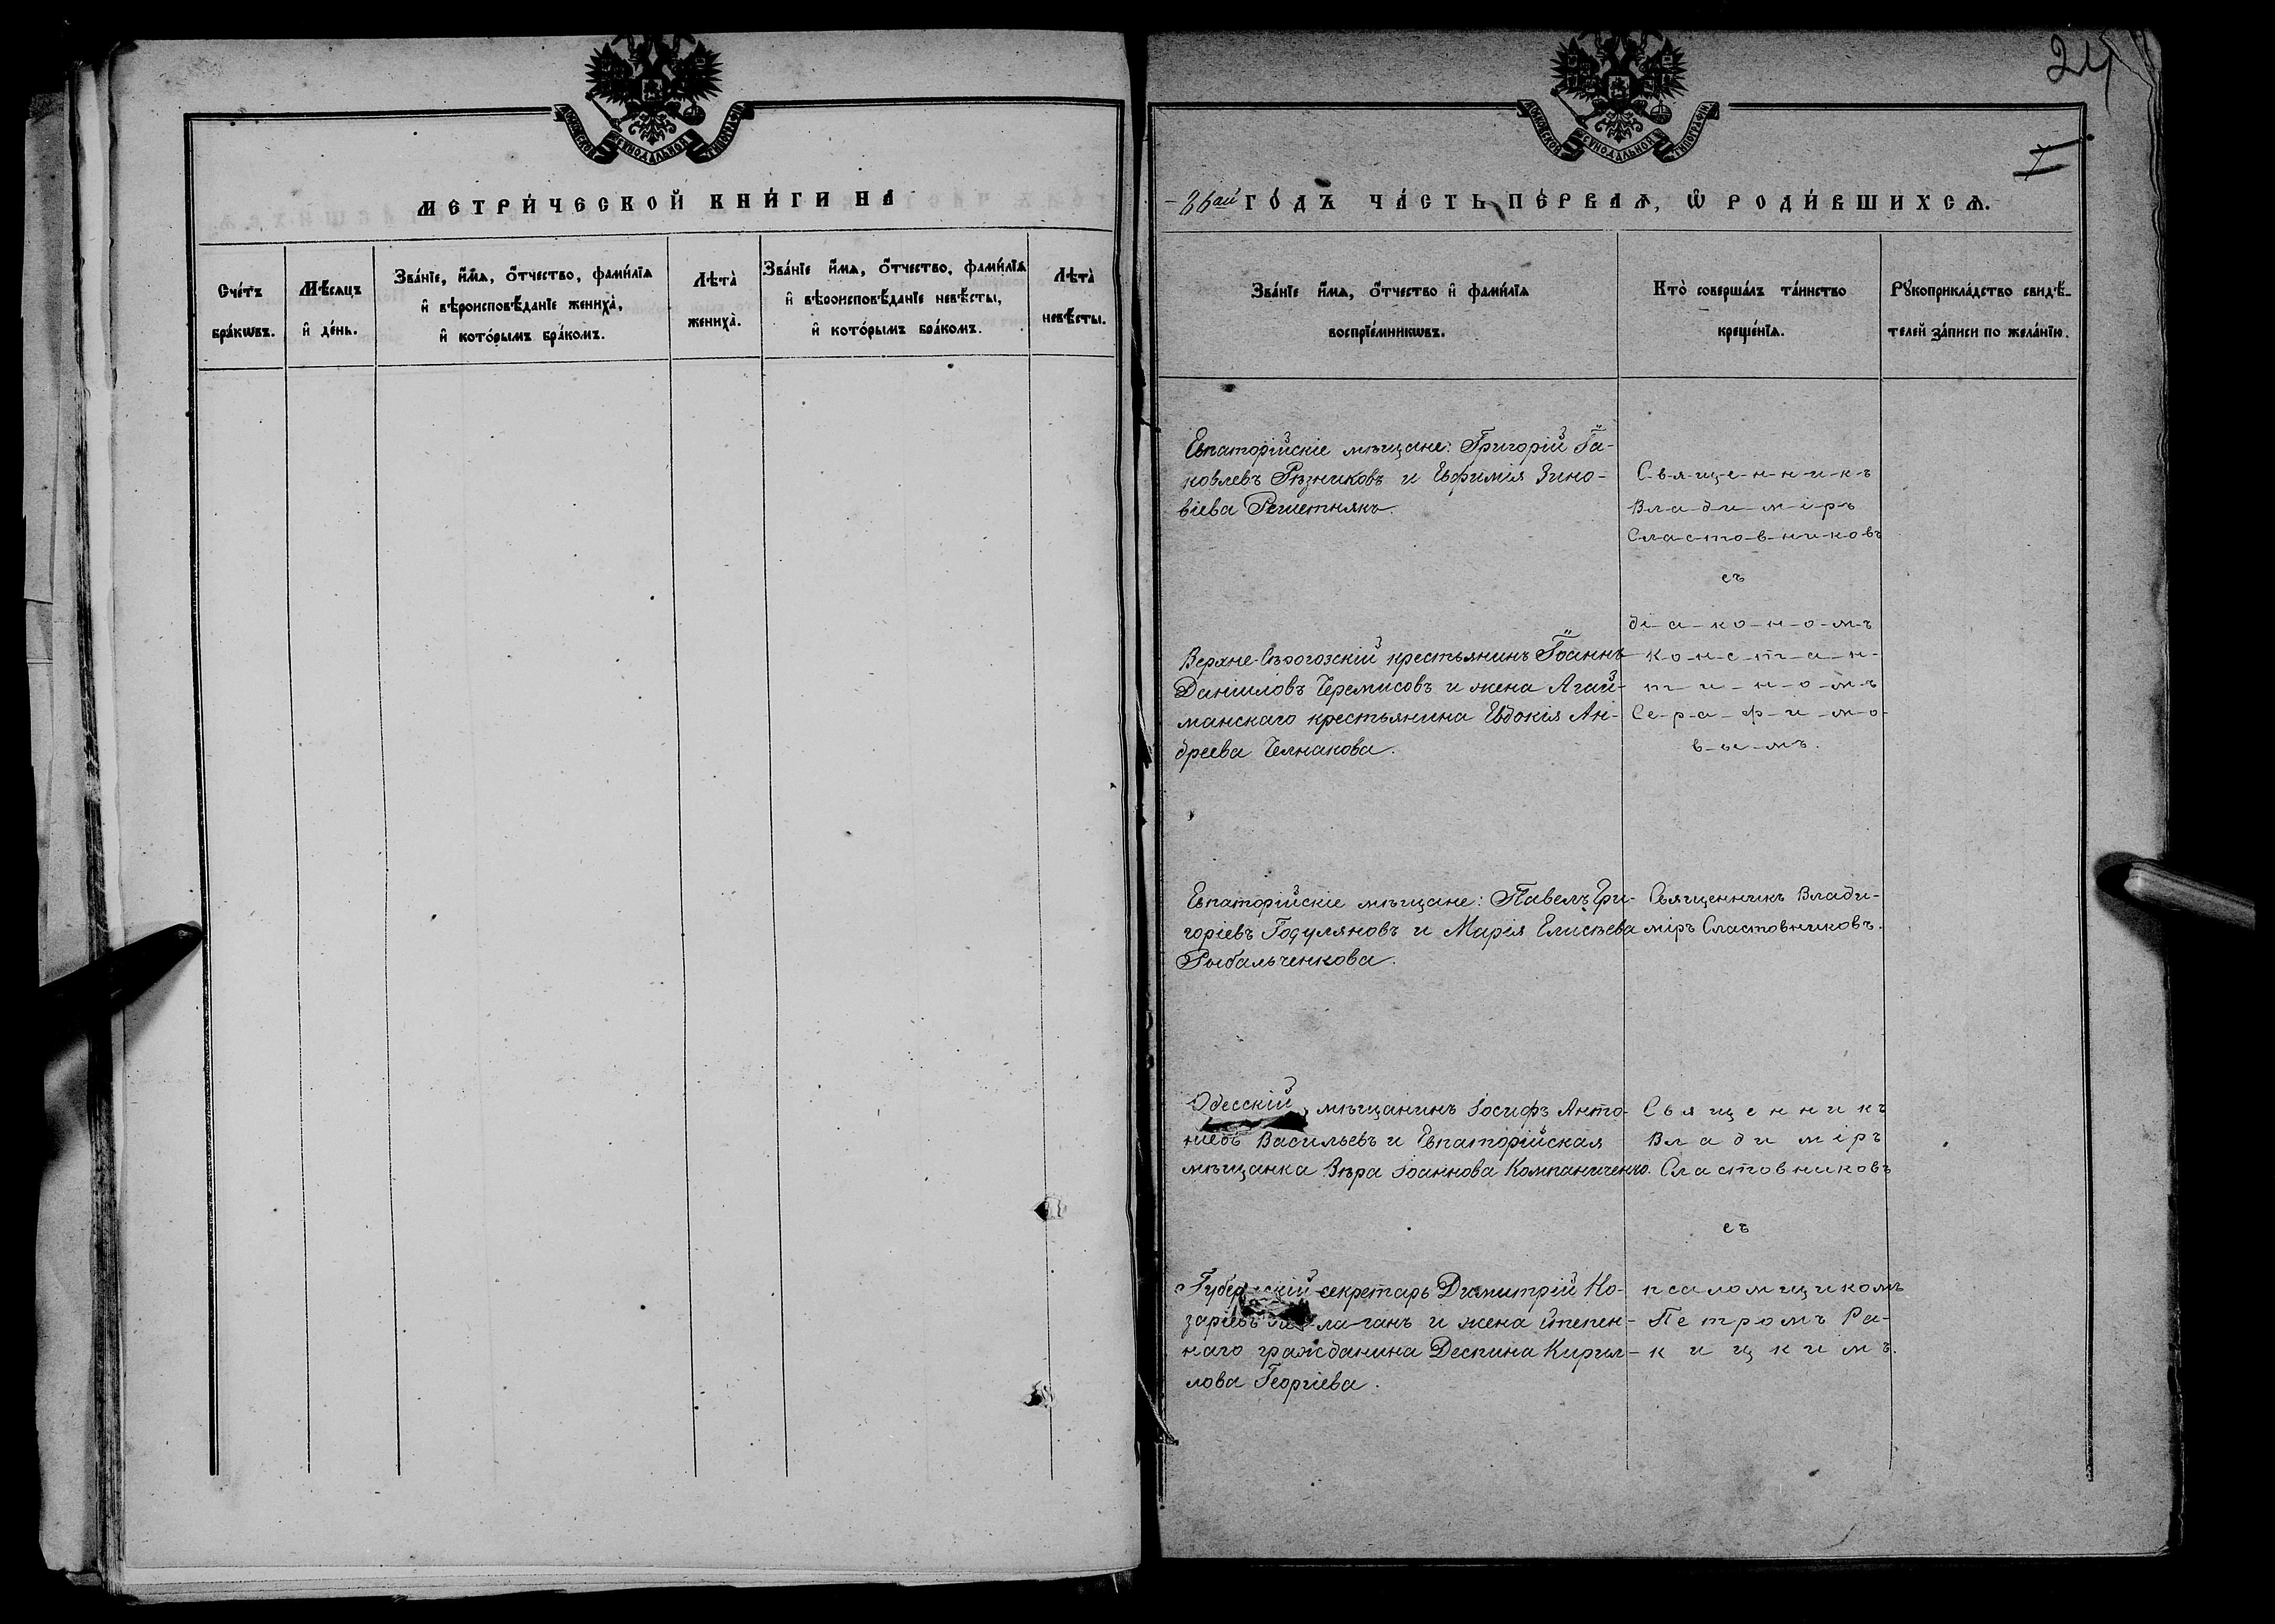 МОСКОВСКОЙ СѴНОДАЛЬНОЙ ТИПОГРАФІИ
МЕТРИ́ЧЕСКОЙ КНИ́ГИ НА
Сче́тъ бра́кѡвъ.
Мѣ́сяцъ и҆ де́нь.
Зва́нїе, и҆́мѧ, ѻ҆́тчество, фами́лїѧ
и҆ вѣроисповѣ́данїе жениха̀,
и҆ кото́рымъ бра́комъ.
Лѣта̀
жениха̀.
Зва́нїе и҆́мѧ, ѻ҆́тчество, фами́лїѧ
и҆ вѣроисповѣ́данїе невѣ́сты,
и҆ кото́рымъ бра́комъ.
Лѣта̀
невѣ́сты.
24
МОСКОВСКОЙ СѴНОДАЛЬНОЙ ТИПОГРАФІИ
I
-86ай ГО́ДЪ ЧА́СТЬ ПЕ́РВАѦ, Ѡ҆ РОДИ́ВШИХСѦ.
Зва́нїе и҆́мѧ, ѻ҆́тчество и҆ фами́лїѧ
воспрїе́мникѡвъ.
Кто̀ соверша́лъ та́инство
креще́нїѧ.
Рꙋкоприкла́дство свидѣ́-
телей за́писи по жела́нїю.
Евпаторійскіе мѣщане: Григорій Іа-
ковлевъ Рѣзниковъ и Евфимія Зино-
віева Решетнякъ.
С-в-я-щ-е-н-н-и-к-ъ
В-л-а-д-и-м-і-р-ъ
С-л-а-с-т-о-в-н-и-к-о-в-ъ
съ
ді-а-к-о-н-о-м-ъ
К-о-н-с-т-а-н-
т-и-н-о-м-ъ
Се-р-а-ф-и-м-о-
в-ы-м-ъ.
Верхне-Сѣрогозскій крестьянинъ Іоаннъ
Даніиловъ Черемисовъ и жена Агай-
манскаго крестьянина Евдокія Ан-
дреева Челнакова.
Евпаторійскіе мѣщане: Павелъ Гри-
горіевъ Годуляновъ и Марія Елисѣева
Рыбальченкова.
Священникъ Влади-
міръ Сластовниковъ.
Одесскій мѣщанинъ Іосифъ Анто-
ніевъ Васильевъ и Евпаторійская
мѣщанка Вѣра Іоаннова Компаниченко.
Священникъ
Владиміръ
Сластовниковъ
съ
псаломщикомъ
Петромъ Ра-
кицкимъ.
секретарь Димитрій Но-
заріевъ и жена степен-
наго гражданина Деспина Кирил-
лова Георгіева.